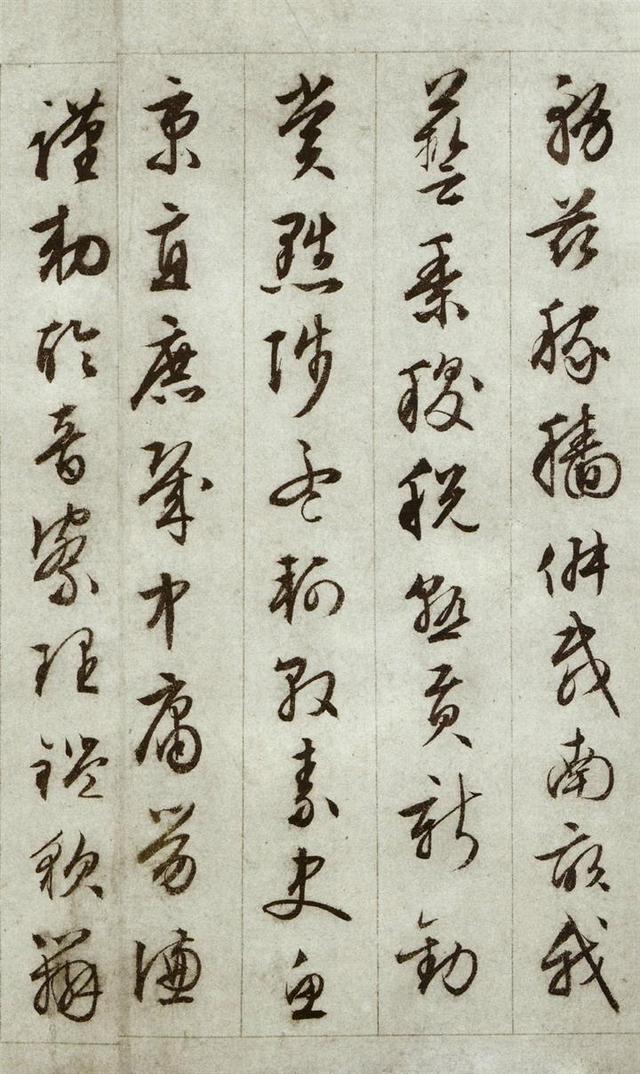 務茲稼穡俶載南畝我
藝黍稷稅熟貢新勸
賞黜陟孟軻敦素史魚
秉直庶幾中庸勞謙
謹勑聆音察理鑑貌辨